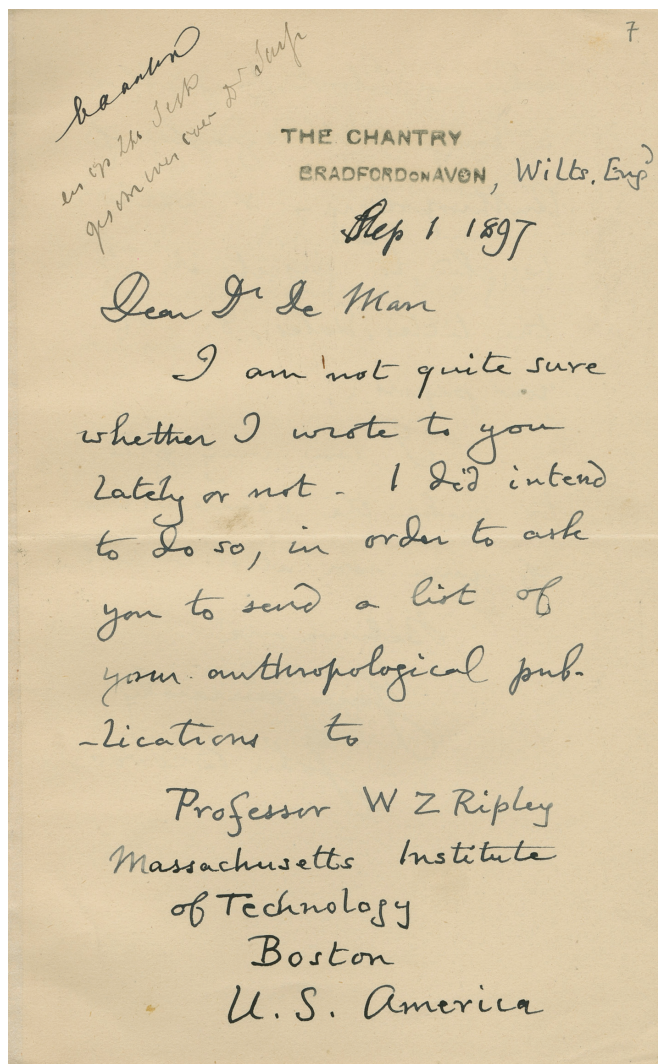 7
THE CHANTRY
BRADFORD ON AVON, Wilts. Engd
Sep 1 1897
Dear Dr De Man
I am not quite sure
whether I wrote to you
lately or not - I did intend
to do so, in order to ask
you to send a list of
your anthropological pub-
-lications to
Professor W Z Ripley
Massachusetts Institute
of Technology
Boston
U. S. America